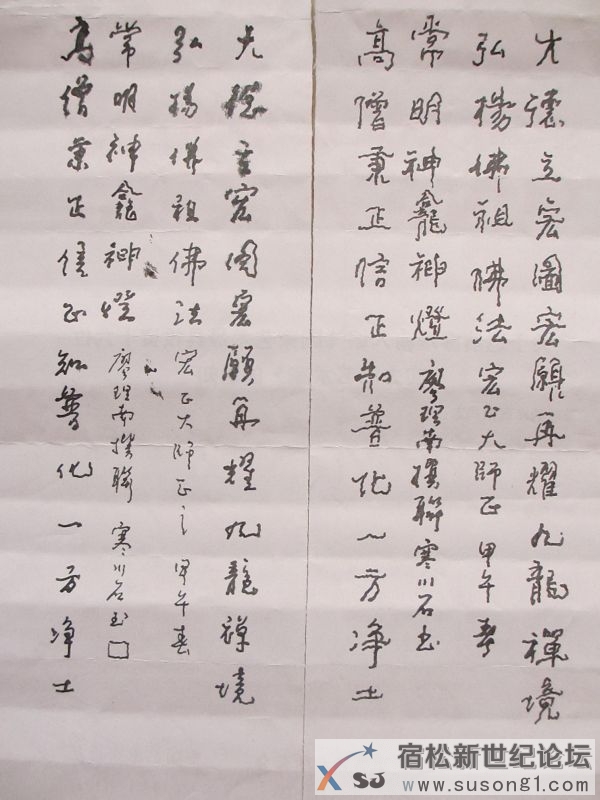 大德立宏圖宏願再耀九龍禪境
弘揚佛祖佛法 宏正大師正 甲午春
常明神龕神燈 廖理南撰聯 寒川石书
高僧秉正信正知普化一方净土
大德立宏圖宏願再耀九龍禪境
弘揚佛祖佛法 宏正大師正之 甲午春
常明神龕神燈 廖理南撰聯 寒川石书
高僧秉正信正知普化一方净土
SJ
宿松新世纪论坛
www.susong1.com